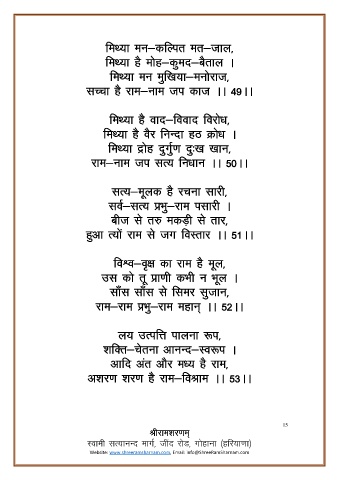 मिथ्या मन–कल्पित मत–जाल,
मिथ्या है मोह–कुमद–बैताल ।
मिथ्या मन मुखिया–मनोराज,
सच्चा है राम–नाम जप काज ।। 49।।
मिथ्या है वाद–विवाद विरोध,
मिथ्या है वैर निन्दा हठ क्रोध ।
मिथ्या द्रोह दुर्गुण दुःख खान,
राम–नाम जप सत्य निधान ।। 50।।
सत्य–मूलक है रचना सारी,
सर्व–सत्य प्रभु–राम पसारी ।
बीज से तरु मकड़ी से तार,
हुआ त्यों राम से जग विस्तार ।। 51।।
विश्व–वृक्ष का राम है मूल,
उस को तू प्राणी कभी न भूल ।
साँस साँस से सिमर सुजान,
राम–राम प्रभु–राम महान् ।। 52।।
लय उत्पत्ति पालना रूप,
शक्ति–चेतना आनन्द–स्वरूप ।
आदि अंत और मध्य है राम,
अशरण शरण है राम–विश्राम ।। 53।।
15
श्रीरामशरणम्
स्वामी सत्यानन्द मार्ग, जींद रोड, गोहाना (हरियाणा)
Website: www.shreeramsharnam.com, Email: info@ShreeRamSharnam.com